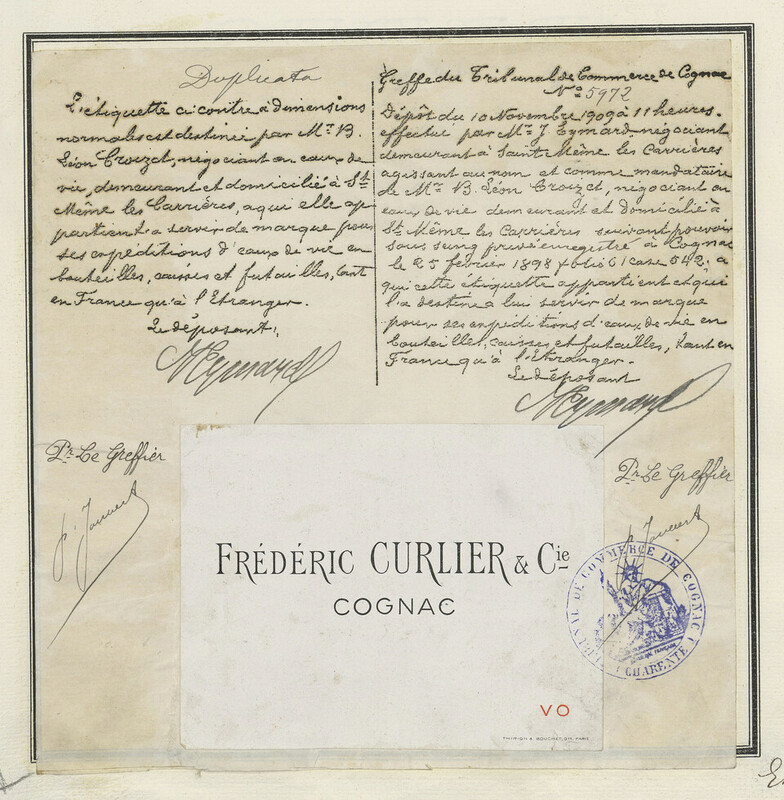 Duplicata
L'étiquette ci contre à dimensions
normales est destinée par Mr. B.
Léon Croizet, négociant en eaux de
vie, demeurant et domicilié à St
Même les Carrières, a qui elle ap
partient a servir de marque pour
ses expéditions d'eaux de vie en
bouteilles, caisses et futailles, tant
en France qu'à l'Etranger.
Le déposant,
Greffe du Tribunal de Commerce de Cognac
No 5972
Dépôt du 10 Novembre 1909 à 11 heures.
effectué par Mr. J. Eymard négociant
demeurant à Saint Même les Carrières
agissant au nom et comme mandataire
de Mr. B. Léon Croizet, négociant en
eaux de vie demeurant et domicilié à
St Même les Carrières suivant pouvoir
sous seing privé enregistré à Cognac
le 25 février 1898 folio 61 case 542, a
qui cette étiquette appartient et qui
l'a destine a lui servir de marque
pour ses expéditions d'eaux de vie en
bouteilles, caisses et futailles, tant en
France qu'à l'Etranger.
Le déposant
JEymard
JEymard
Pr Le Greffier
Pr Le Greffier
FRÉDÉRIC CURLIER & Cie
COGNAC
VO
TRIBUNAL DE COMMERCE DE COGNAC
CHARENTE